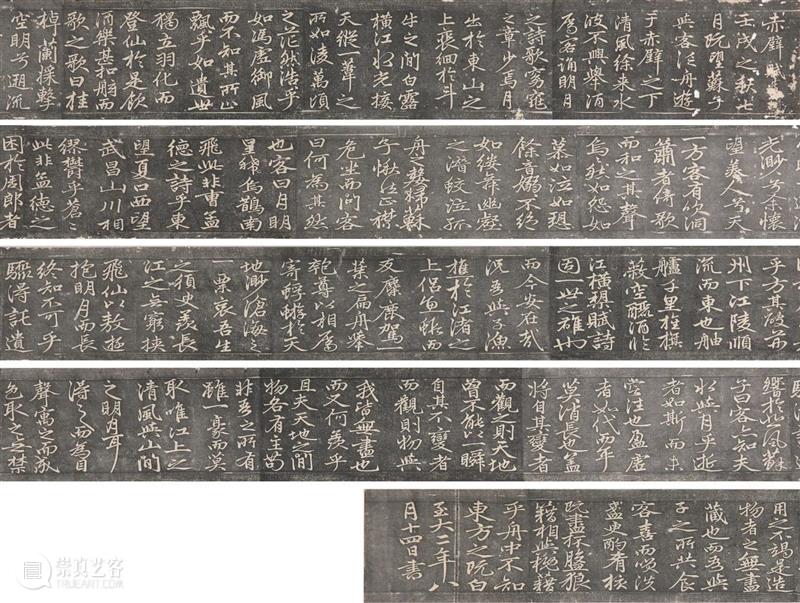 赤壁賦
壬戌之秋七
月既望蘇子
與客泛舟遊
于赤壁之下
清風徐來水
波不興舉酒
屬客誦明月
之詩歌窈窕
之章少焉月
出於東山之
上裵回於斗
牛之間白露
橫江水光接
天縱一葦之
所如淩萬頃
之茫然浩乎
如馮虛御風
而不知其所止
飄乎如遺世
獨立羽化而
登仙於是飲
酒樂甚扣舷而
歌之歌曰桂
棹蘭槳擊
空明兮泝流
光渺渺兮余懷
望美人兮天
一方客有吹洞
簫者倚歌
而和之其聲
烏烏然如怨如
慕如泣如愬
餘音嫋嫋不絕
如縷舞幽壑
之潛蛟泣孤
舟之嫠婦蘇
子愀然正襟
危坐而問客
曰何為其然
也客曰月明
星稀烏鵲南
飛此非曹孟
德之詩乎東
望夏口西望
武昌山川相
繆鬱乎蒼蒼
此非孟德之
困於周郎者
乎方其破荊
州下江陵順
流而東也舳
艫千里旌旗
蔽空釃酒臨
江橫槊賦詩
固一世之雄也
而今安在哉
況吾與子漁
樵於江渚之
上侶魚蝦而
友麋鹿駕一
葉之扁舟舉
匏尊以相屬
寄蜉蝣於天
地渺滄海之
一粟哀吾生
之須臾羨長
江之無窮挾
飛仙以敖遊
抱明月而長
終知不可乎
驟得託遺
響於悲風蘇
子曰客亦知夫
水與月乎逝
者如斯而未
嘗往也盈虛
者如代而卒
莫消長也蓋
將自其變者
而觀之則天地
曾不能以一瞬
自其不變者
而觀則物與
我皆無盡也
而又何羨乎
且夫天地之間
物各有主苟
非吾之所有
雖一豪而莫
取唯江上之
清風與山間
之明月耳
得之而為
聲寓之而成
色取之無禁
用之不竭是造
物者之無盡
藏也而吾與
子之所共食
客喜而笑洗
盞更酌肴核
既盡杯盤狼
藉相與枕藉
乎舟中不知
東方之既白
至大三年八
月十四日書
崇真艺客